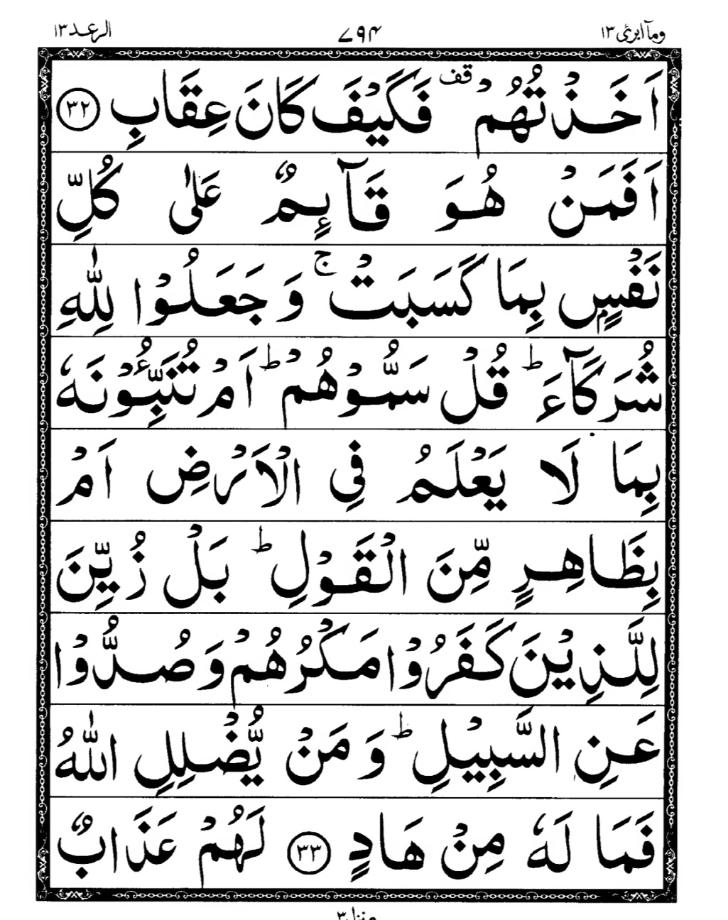 وما ابرئ ١٣ ٧٩٤ الرعد ١٣
اَخَذْتُهُمْ ۫ قف فَكَيْفَ كَانَ عِقَابِ ﴿٣٢﴾
اَفَمَنْ هُوَ قَآىِٕمٌ عَلٰى كُلِّ
نَفْسٍۭ بِمَا كَسَبَتْ ۚ وَ جَعَلُوْا لِلّٰهِ
شُرَكَآءَ ؕ قُلْ سَمُّوْهُمْ ؕ اَمْ تُنَبِّـُٔوْنَهٗ
بِمَا لَا يَعْلَمُ فِي الْاَرْضِ اَمْ
بِظَاهِرٍ مِّنَ الْقَوْلِ ؕ بَلْ زُيِّنَ
لِلَّذِيْنَ كَفَرُوْا مَكْرُهُمْ وَ صُدُّوْا
عَنِ السَّبِيْلِ ؕ وَ مَنْ يُّضْلِلِ اللّٰهُ
فَمَا لَهٗ مِنْ هَادٍ ﴿٣٣﴾ لَهُمْ عَذَابٌ
منزل ٣